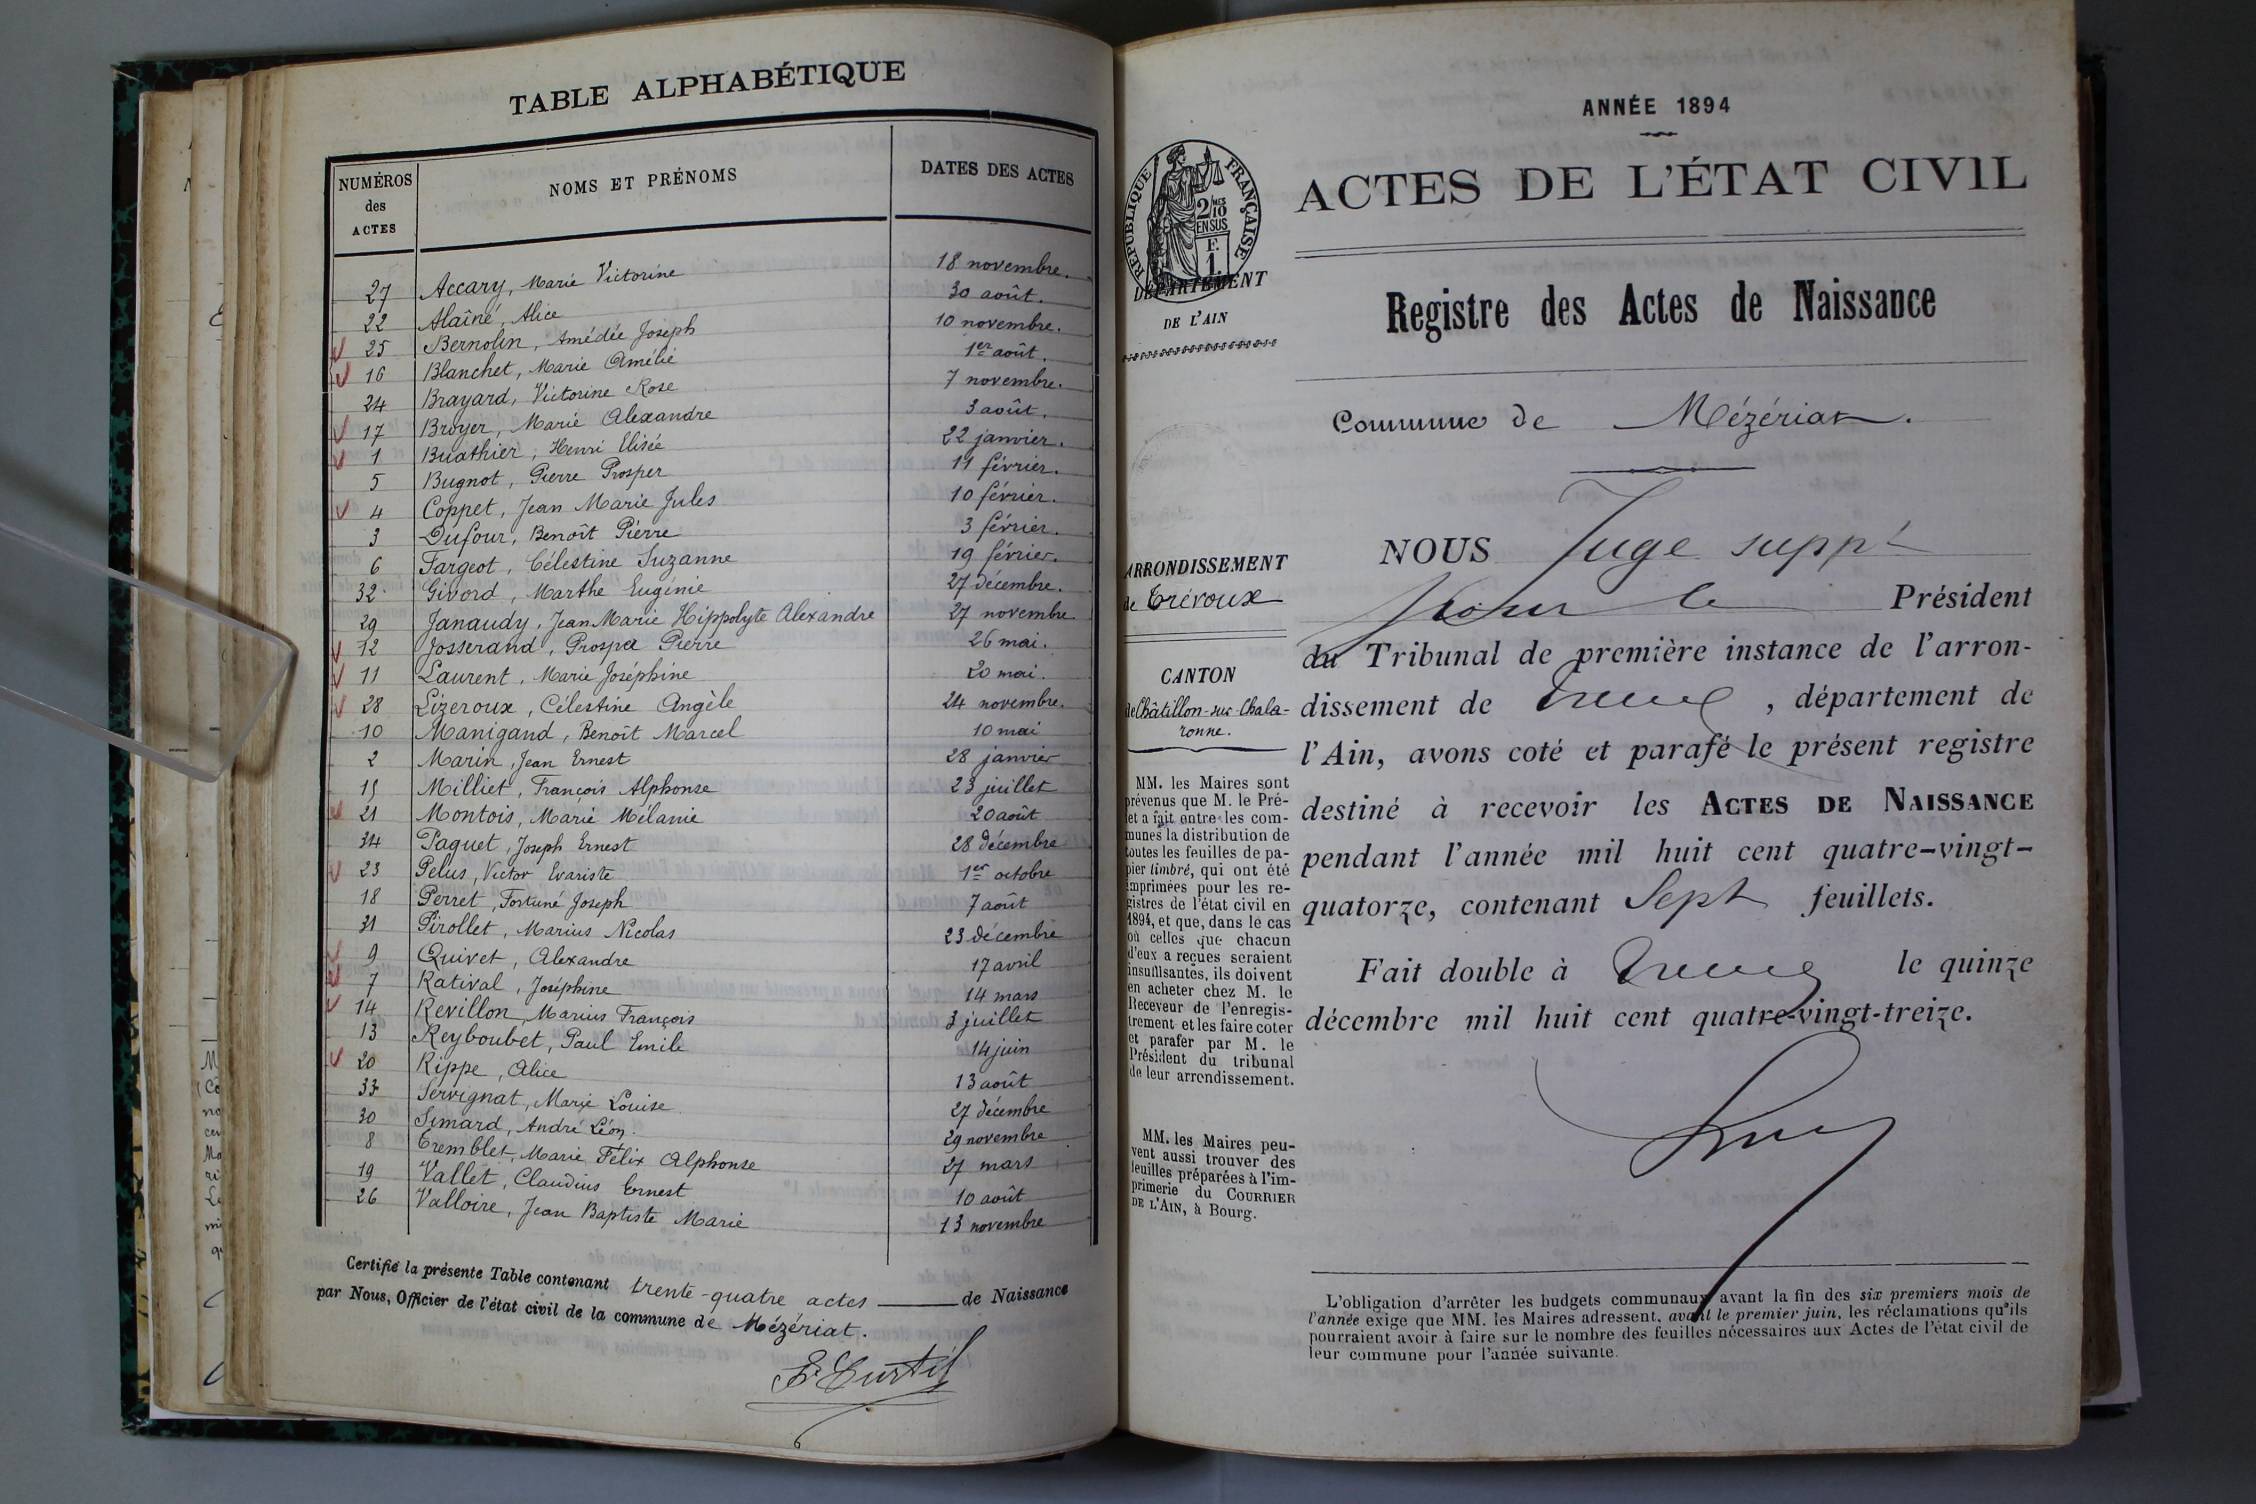 TABLE ALPHABÉTIQUE
NUMÉROS des ACTES
NOMS ET PRÉNOMS
DATES DES ACTES
27 Accary, Marie Victorine 18 novembre.
22 Alaîné, Alice 30 août.
25 Bernolin, Amédée Joseph 10 novembre.
16 Blanchet, Marie Amélie 1er août.
24 Brayard, Victorine Rose 7 novembre.
17 Broyer, Marie Alexandre 3 août.
1 Buathier, Henri Elisée 22 janvier.
5 Bugnot, Pierre Prosper 11 février.
4 Coppet, Jean Marie Jules 10 février.
3 Dufour, Benoît Pierre 3 février.
6 Fargeot, Célestine Suzanne 19 février.
32 Givord, Marthe Eugénie 27 décembre.
29 Janaudy, Jean Marie Hippolyte Alexandre 27 novembre
12 Josserand, Prosper Pierre 26 mai.
11 Laurent, Marie Joséphine 20 mai.
28 Lizeroux, Célestine Angèle 24 novembre.
10 Manigand, Benoît Marcel 10 mai
2 Marin, Jean Ernest 28 janvier
15 Milliet, François Alphonse 23 juillet
21 Montois, Marie Mélanie 20 août
34 Paquet, Joseph Ernest 28 décembre
23 Pelus, Victor Evariste 1er octobre
18 Perret, Fortuné Joseph 7 août
31 Pirollet, Marius Nicolas 23 décembre
9 Quivet, Alexandre 17 avril
7 Ratival, Joséphine 14 mars
14 Revillon, Marius François 3 juillet
13 Reyboubet, Paul Emile 14 juin
20 Rippe, Alice 13 août
33 Servignat, Marie Louise 27 décembre
30 Simard, André Léon. 29 novembre
8 Tremblet, Marie Félix Alphonse 27 mars
19 Vallet, Claudius Ernest 10 août
26 Valloire, Jean Baptiste Marie 13 novembre
Certifié la présente Table contenant trente-quatre actes de Naissance
par Nous, Officier de l'état civil de la commune de Mézériat.
ANNÉE 1894
RÉPUBLIQUE FRANÇAISE
2/10 EN SUS
F. 1.
DÉPARTEMENT
DE L'AIN
ACTES DE L'ÉTAT CIVIL
Registre des Actes de Naissance
Commune de Mézériat.
ARRONDISSEMENT
de Trévoux
CANTON
de Châtillon-sur-Chala-
ronne.
MM. les Maires sont
prévenus que M. le Pré-
fet a fait entre les com-
munes la distribution de
toutes les feuilles de pa-
pier timbré, qui ont été
imprimées pour les re-
gistres de l'état civil en
1894, et que, dans le cas
où celles que chacun
d'eux a reçues seraient
insuffisantes, ils doivent
en acheter chez M. le
Receveur de l'enregis-
trement et les faire coter
et parafer par M. le
Président du tribunal
de leur arrondissement.
MM. les Maires peu-
vent aussi trouver des
feuilles préparées à l'im-
primerie du COURRIER
DE L'AIN, à Bourg.
NOUS Juge suppt
pour le Président
du Tribunal de première instance de l'arron-
dissement de Trévoux, département de
l'Ain, avons coté et parafé le présent registre
destiné à recevoir les ACTES DE NAISSANCE
pendant l'année mil huit cent quatre-vingt-
quatorze, contenant Sept feuillets.
Fait double à Trévoux le quinze
décembre mil huit cent quatre-vingt-treize.
L'obligation d'arrêter les budgets communaux avant la fin des six premiers mois de
l'année exige que MM. les Maires adressent, avant le premier juin, les réclamations qu'ils
pourraient avoir à faire sur le nombre des feuilles nécessaires aux Actes de l'état civil de
leur commune pour l'année suivante.